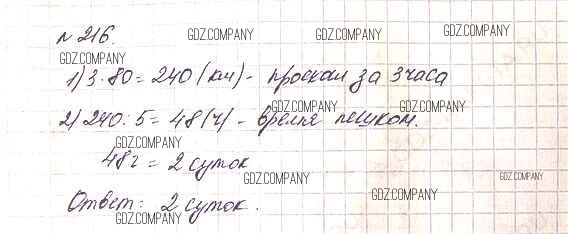 № 216.
GDZ.COMPANY GDZ.COMPANY GDZ.COMPANY
GDZ.COMPANY
1) 3·80 = 240 (км) - проехали за 3 часа
GDZ.COMPANY GDZ.COMPANY
2) 240 : 5 = 48 (ч) - время пешком.
GDZ.COMPANY
48 ч = 2 суток
GDZ.COMPANY GDZ.COMPANY
GDZ.COMPANY
Ответ: 2 суток.
GDZ.COMPANY